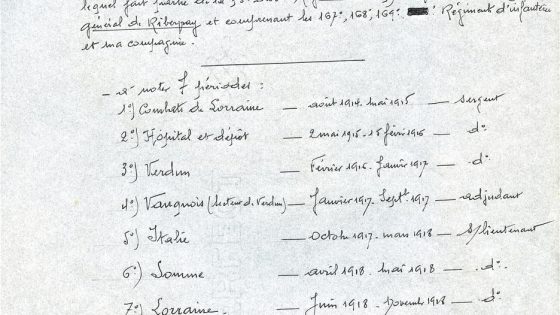 lequel fait
général de Riberpray et comprenant les 167°, 168°, 169° Régiment d'infanterie
et ma compagnie.
- à noter 7 périodes :
1°) Combats de Lorraine — août 1914. mai 1915 — sergent
2°) Hôpital et dépôt — 2 mai 1915 - 15 févri 1916 — d°
3°) Verdun — Février 1916. Janvir 1917 — d°
4°) Vauquois (secteur de Verdun) — Janvier 1917. Sept. 1917 — adjudant
5°) Italie — Octobre 1917. mars 1918 — s/lieutenant
6°) Somme — avril 1918. mai 1918 — d°.
7°) Lorraine. — Juin 1918. Novembre 1918 — d°